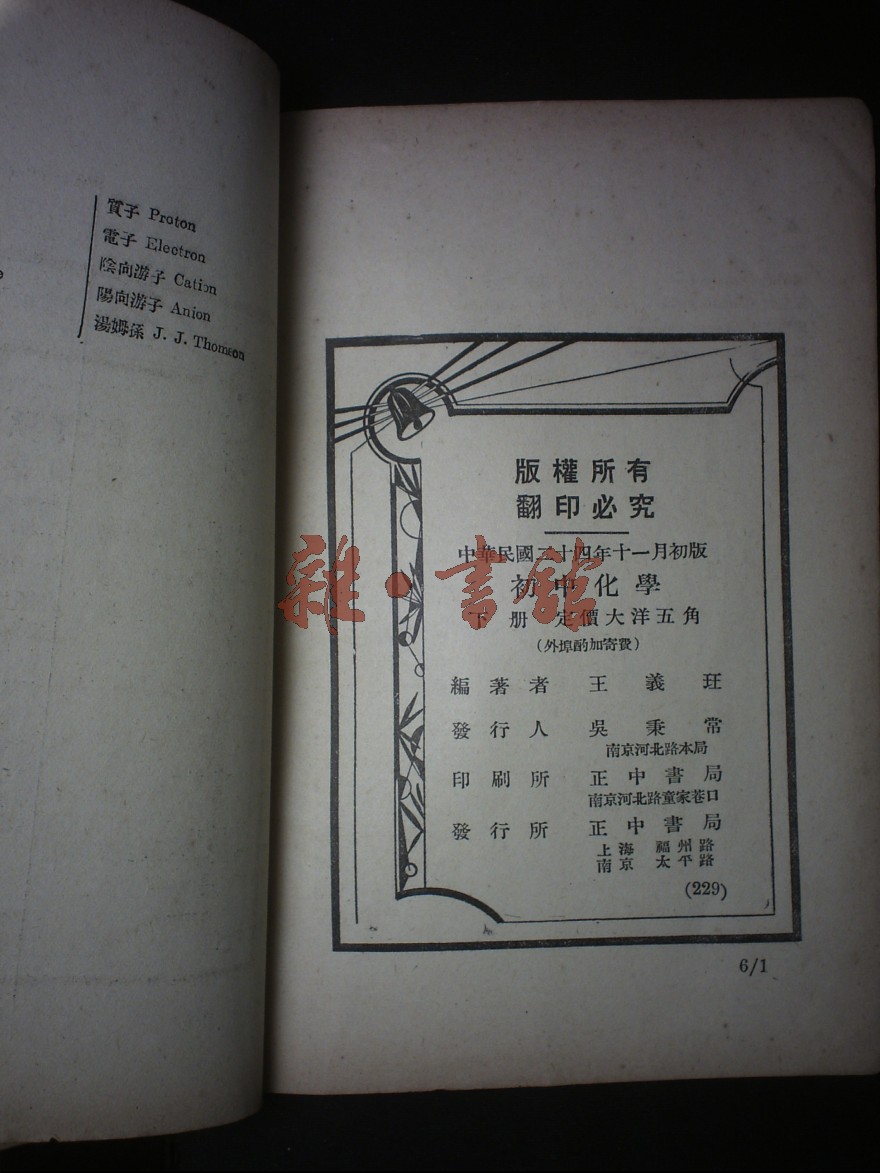 質子 Proton
電子 Electron
陰向游子 Cation
陽向游子 Anion
湯姆孫 J. J. Thomson
版權所有
翻印必究
中華民國二十四年十一月初版
初中化學
下册 定價大洋五角
(外埠酌加寄費)
編著者 王義玨
發行人 吳秉常
南京河北路本局
印刷所 正中書局
南京河北路童家巷口
發行所 正中書局
上海 福州路
南京 太平路
(229)
6/1
雜·書館